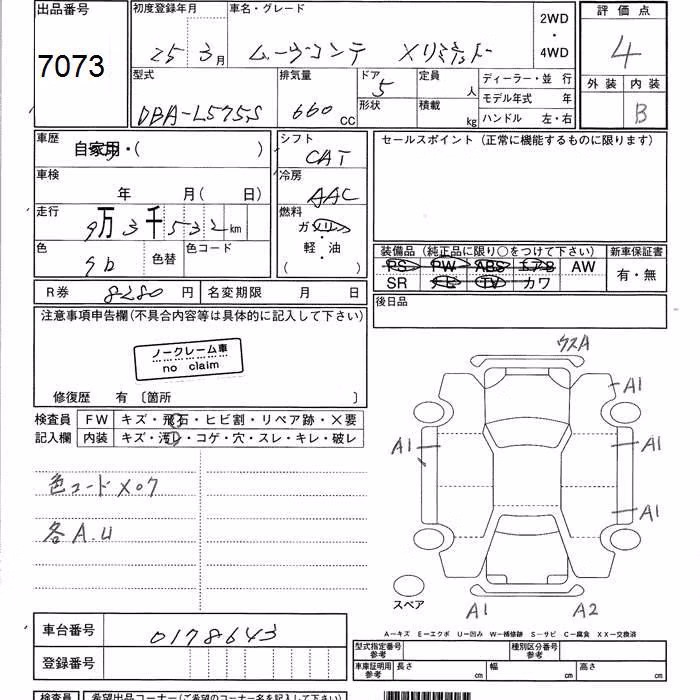 出品番号
7073
初度登録年月
25 3月
車名・グレード
ムーヴコンテ Xリミテッド
2WD
・
4WD
評価点
4
外装 内装
B
型式
DBA-L575S
排気量
660 CC
ドア
5
形状
定員
人
積載
kg
ディーラー・並行
モデル年式 年
ハンドル 左・右
車歴
自家用・( )
車検
年 月 ( 日)
走行
9万3千532km
色
色替
色コード
シフト
CAT
冷房
AAC
燃料
ガソリン
軽・油
( )
セールスポイント (正常に機能するものに限ります)
装備品 (純正品に限り○をつけて下さい)
PS PW ABS エアB AW
SR ナビ TV カワ
新車保証書
有・無
R券 8280円
名変期限 月 日
後日品
注意事項申告欄(不具合内容等は具体的に記入して下さい)
ノークレーム車
no claim
修復歴 有 〔箇所 〕
検査員 FW キズ・飛石・ヒビ割・リペア跡・X要
記入欄 内装 キズ・汚レ・コゲ・穴・スレ・キレ・破レ
色コードX07
各A.U
ウスA
A1
A1
A1
A1
A1
A2
スペア
A-キズ E-エクボ U-凹み W-補修跡 S-サビ C-腐食 XX-交換済
車台番号
0178643
登録番号
型式指定番号 参考
種別区分番号 参考
車庫証明用 参考
長さ cm
幅 cm
高さ cm
検査員
希望出品コーナー(ご希望のコーナー名を記入下さい)